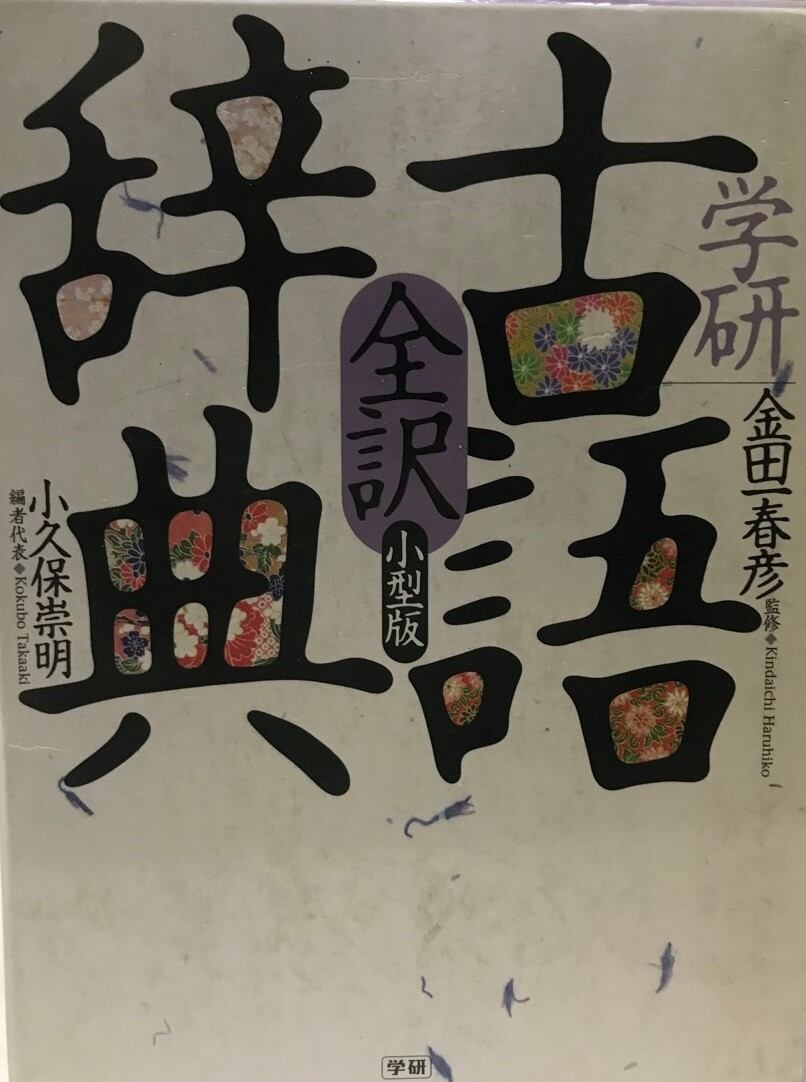 学研
全訳
古語
辞典
小型版
金田一春彦
監修◆Kindaichi Haruhiko
小久保崇明
編者代表◆Kokubo Takaaki
学研